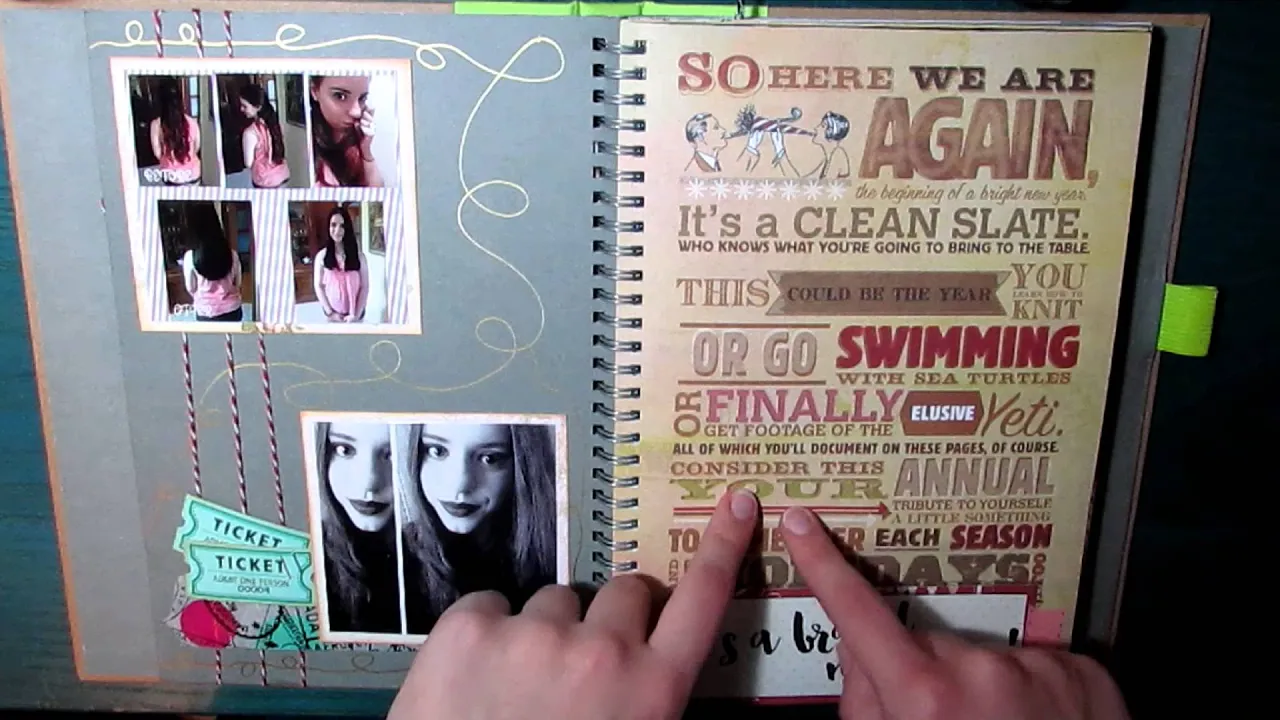 BEFORE
TICKET
TICKET
ADMIT ONE PERSON
00004
SO HERE WE ARE
AGAIN,
the beginning of a bright new year.
It's a CLEAN SLATE.
WHO KNOWS WHAT YOU'RE GOING TO BRING TO THE TABLE.
THIS COULD BE THE YEAR YOU
LEARN HOW TO
KNIT
OR GO SWIMMING
WITH SEA TURTLES
OR FINALLY
GET FOOTAGE OF THE
ELUSIVE Yeti.
ALL OF WHICH YOU'LL DOCUMENT ON THESE PAGES, OF COURSE.
CONSIDER THIS
YOUR
ANNUAL
TRIBUTE TO YOURSELF
A LITTLE SOMETHING
TO
EACH SEASON
AND
's a